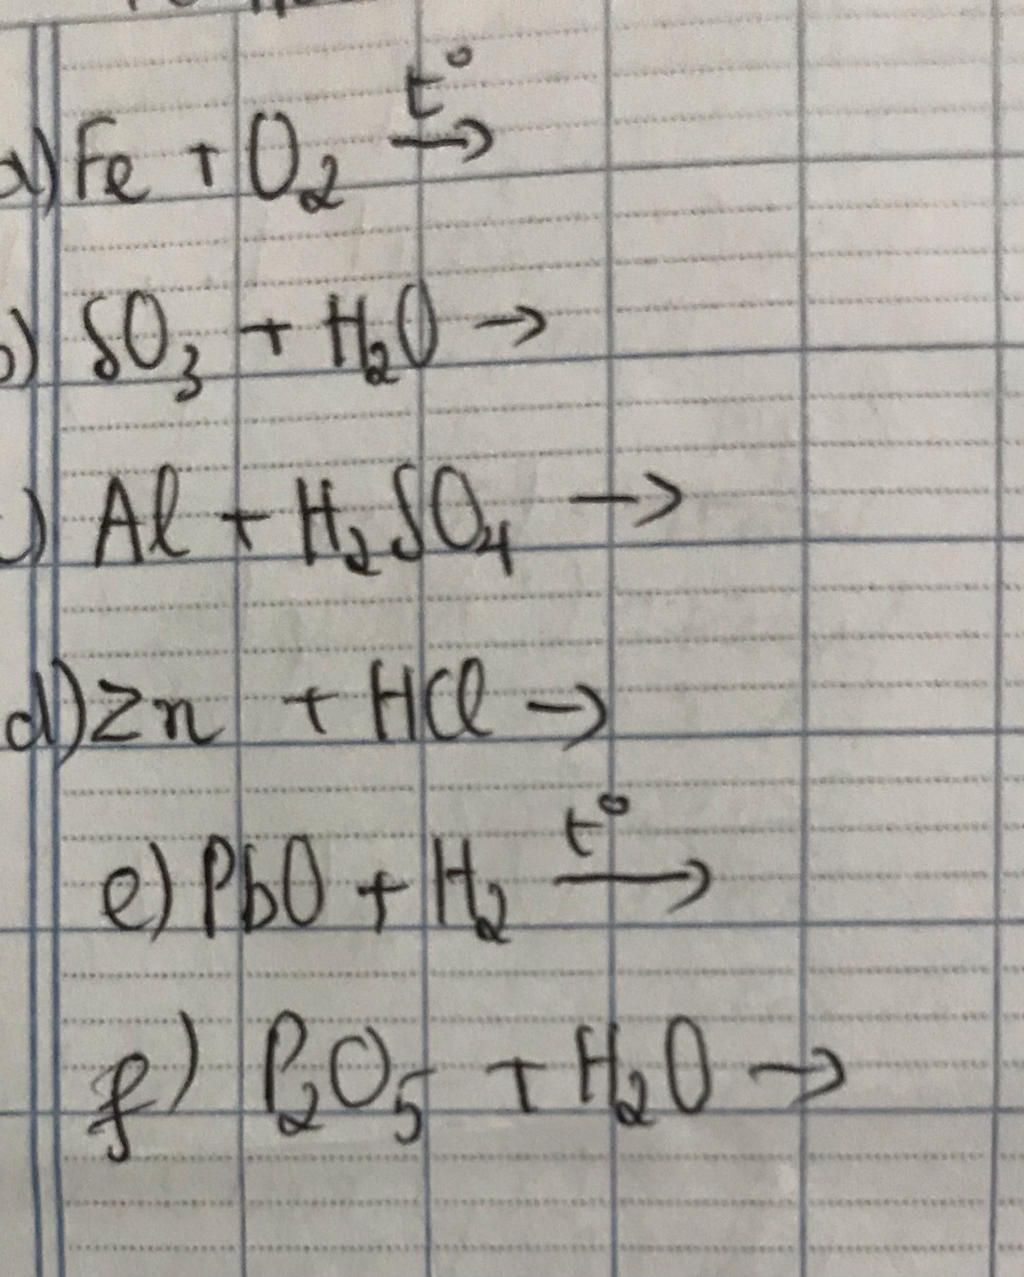 a) Fe + O₂ →t°
b) SO₃ + H₂O →
c) Al + H₂SO₄ →
d) Zn + HCl →
e) PbO + H₂ →t°
f) P₂O₅ + H₂O →